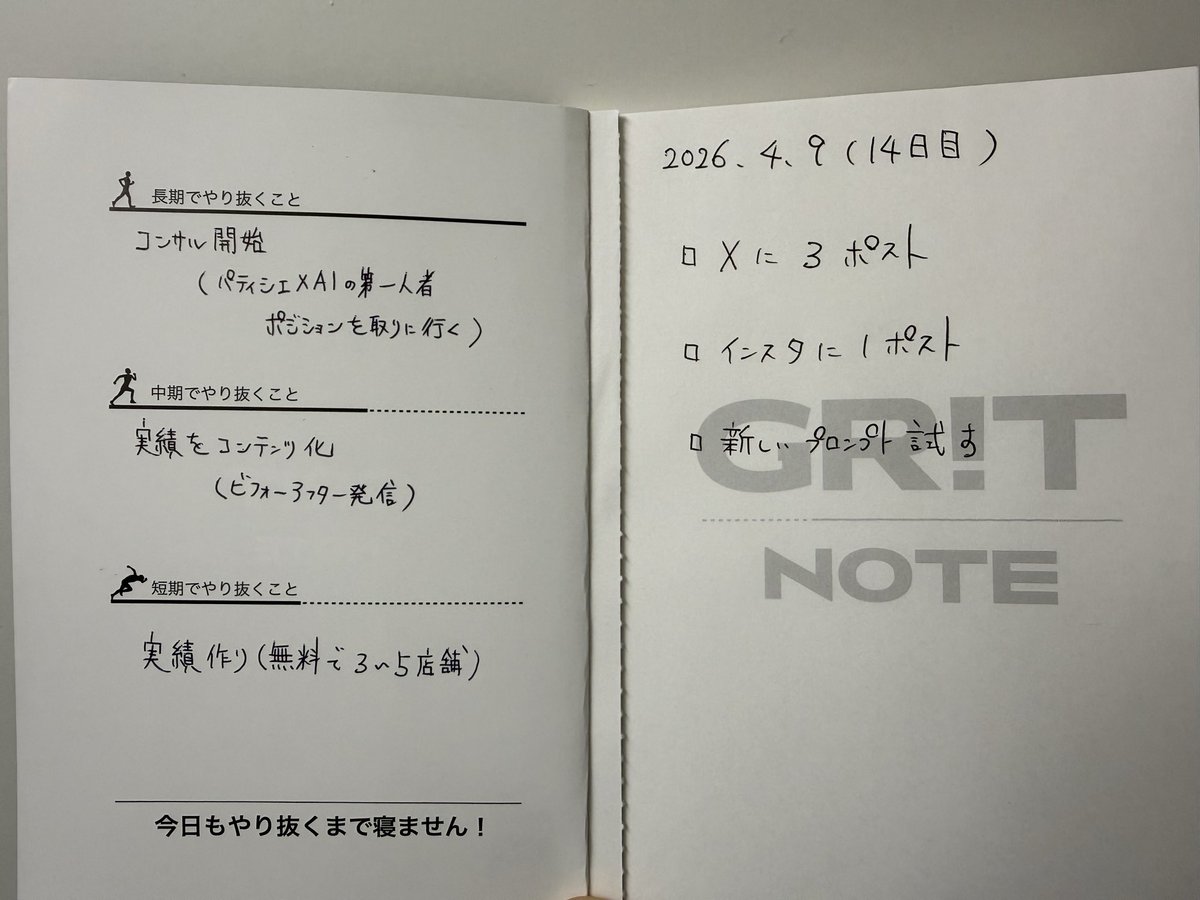 長期でやり抜くこと
コンサル開始
(パティシエ×AIの第一人者
ポジションを取りに行く)
中期でやり抜くこと
実績をコンテンツ化
(ビフォーアフター発信)
短期でやり抜くこと
実績作り(無料で3~5店舗)
今日もやり抜くまで寝ません！
2026.4.9(14日目)
□ Xに3ポスト
□ インスタに1ポスト
□ 新しいプロンプト試す
GR!T
NOTE